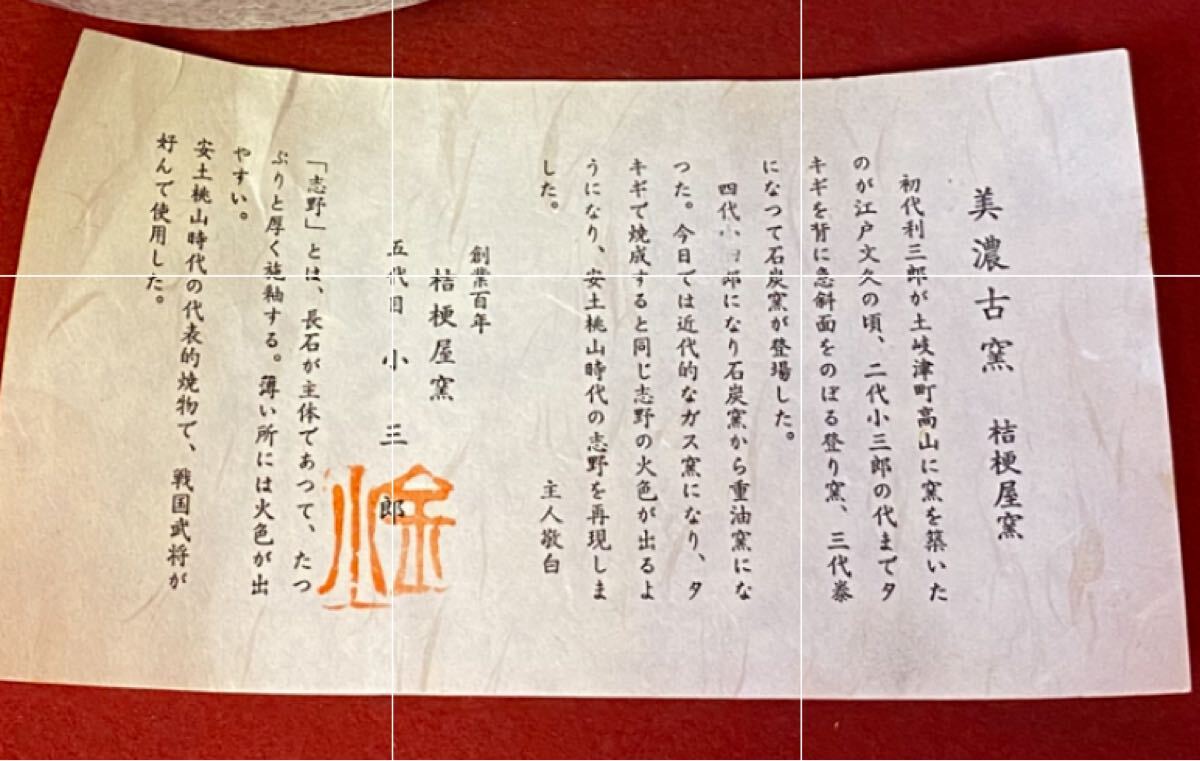 美濃古窯 桔梗屋窯
初代利三郎が土岐津町高山に窯を築いた
のが江戸文久の頃、二代小三郎の代までタ
キギを背に急斜面をのぼる登り窯、三代泰
になつて石炭窯が登場した。
四代小四郎になり石炭窯から重油窯にな
つた。今日では近代的なガス窯になり、タ
キギで焼成すると同じ志野の火色が出るよ
うになり、安土桃山時代の志野を再現しま
した。
主人敬白
創業百年
桔梗屋窯
五代目 小三郎
「志野」とは、長石が主体であつて、たつ
ぷりと厚く施釉する。薄い所には火色が出
やすい。
安土桃山時代の代表的焼物で、戦国武将が
好んで使用した。